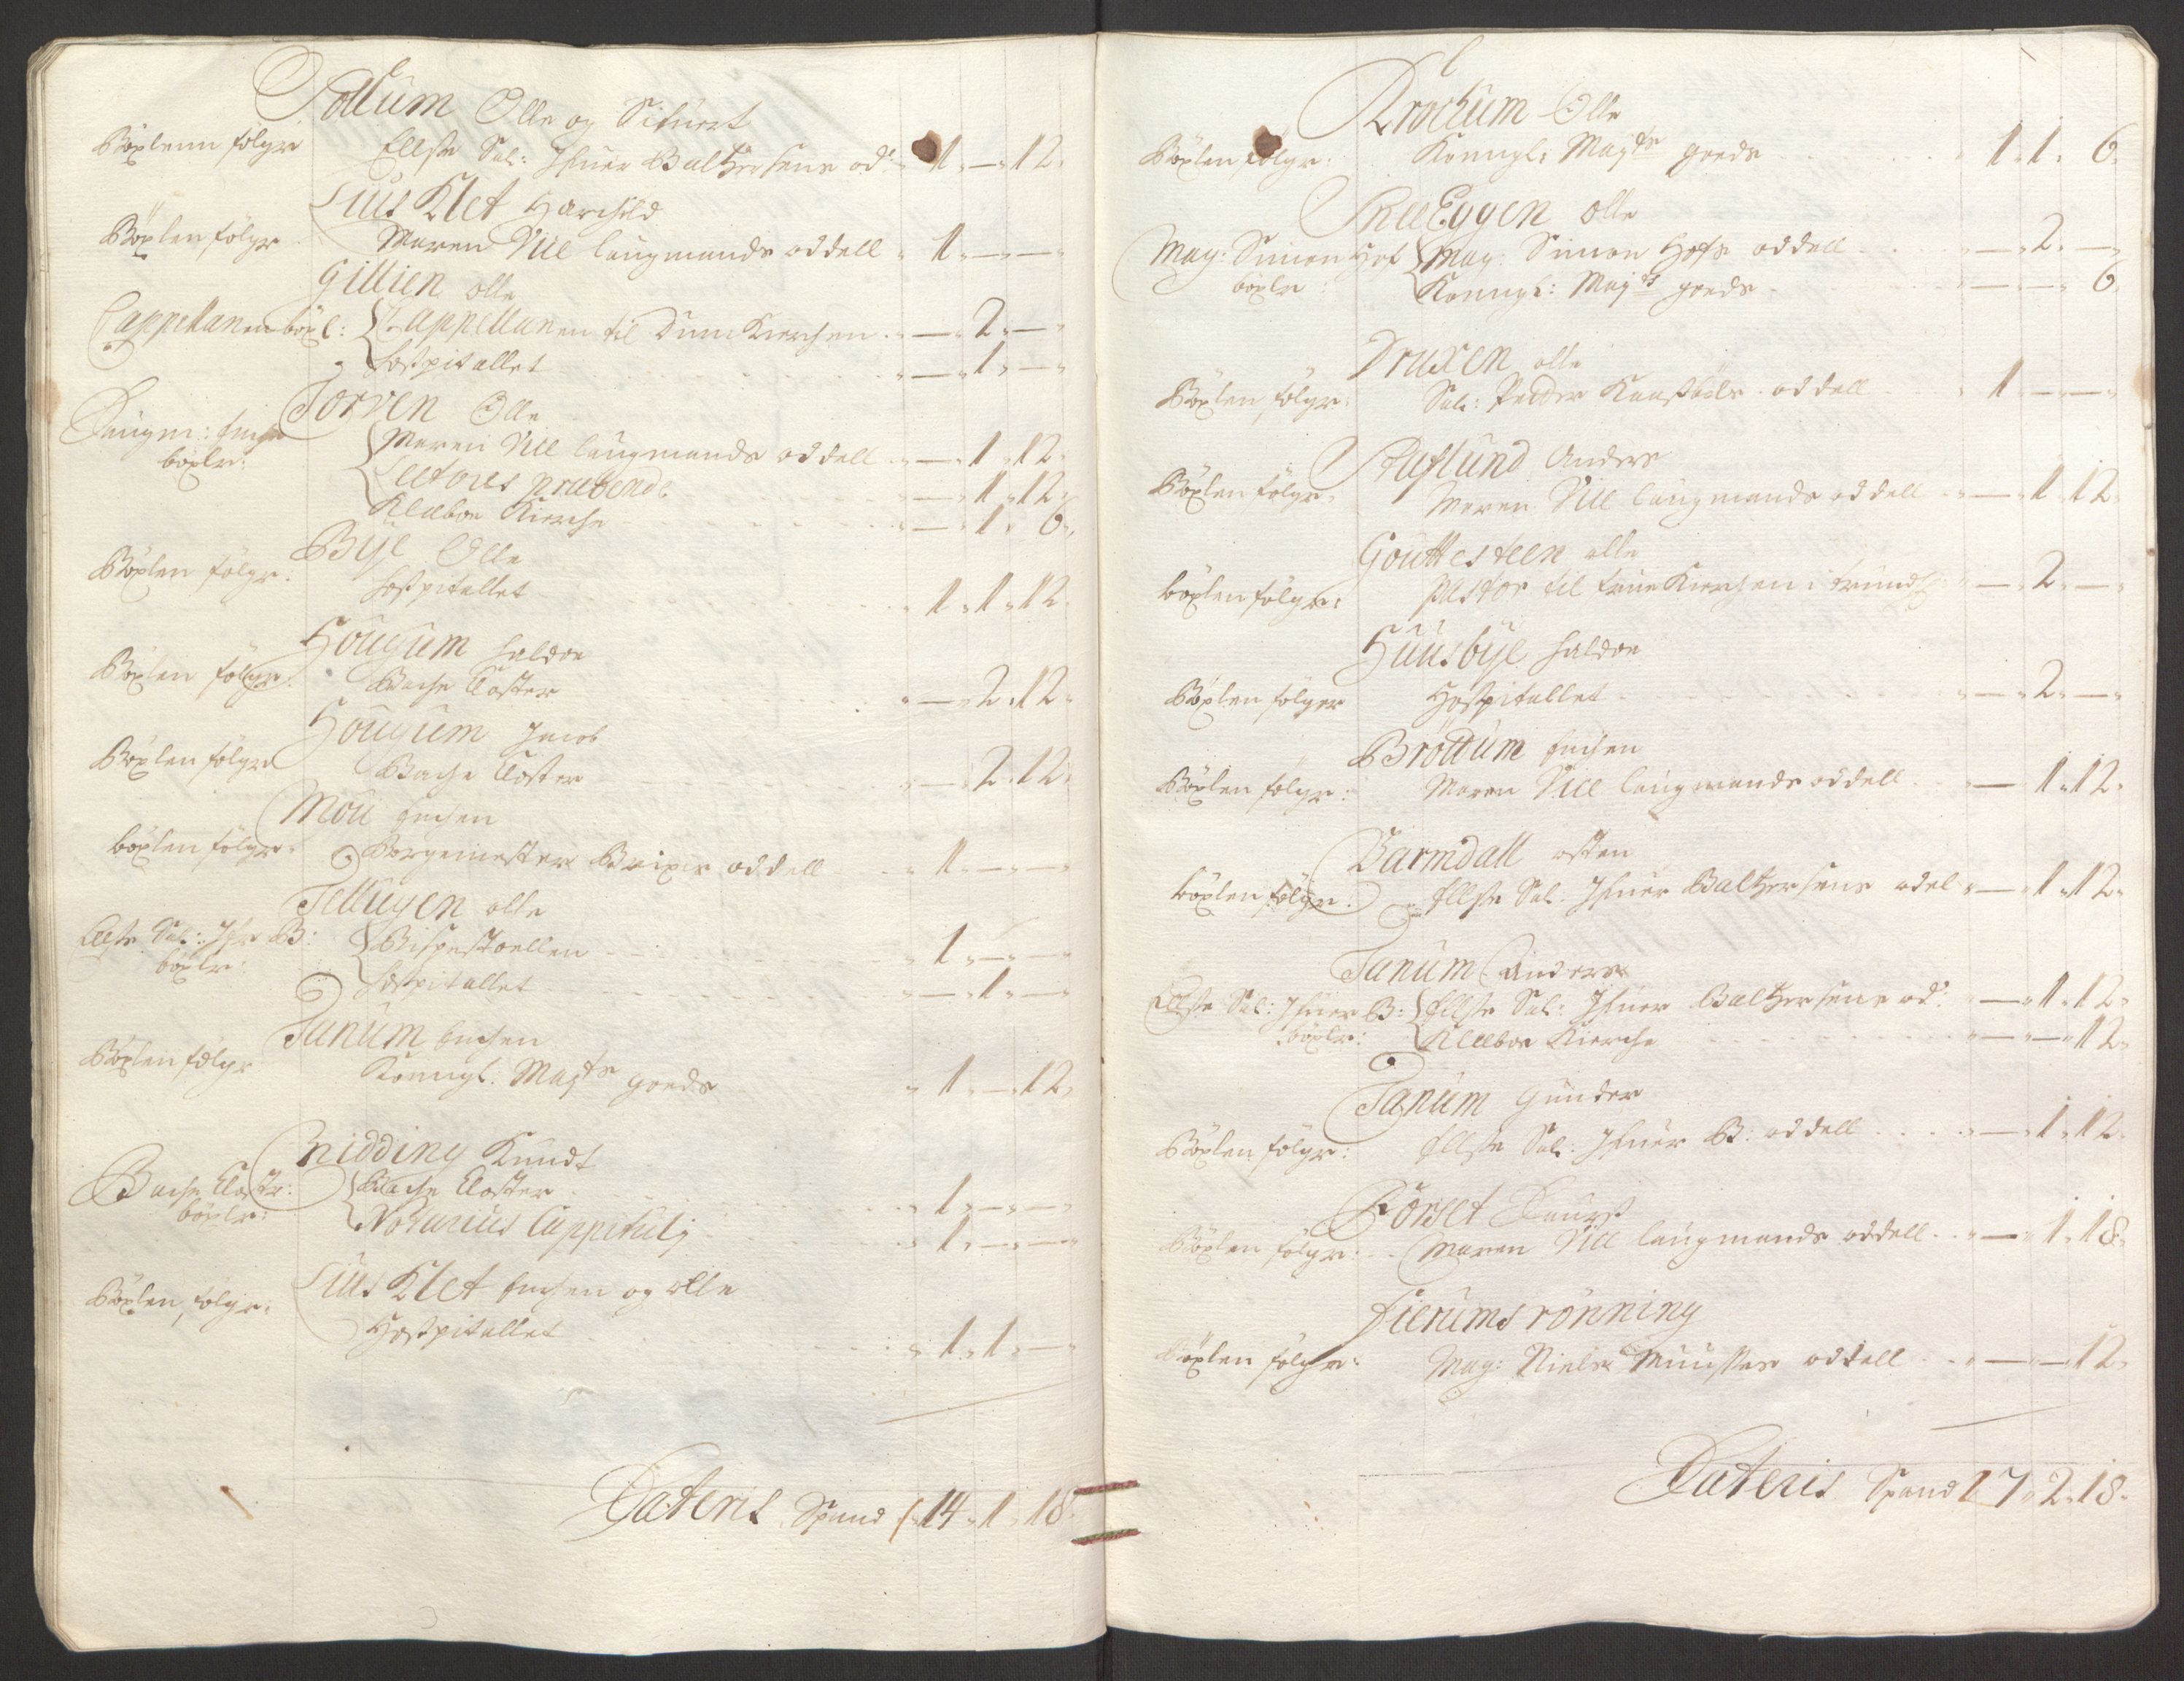 Sollum Olle og Sifuert
Böxlenn fölger Ellste Sal: Ifuer Baltzersens od: 1 „ — „ 12
Liusklet Harchild
Böxlen fölger Maren Sal laugmands oddell „ 1 „ — „ —
Gillien olle
Cappellanen böxl: Cappellanen til Dumkierchen „ — „ 2 „ —
Hospitallet „ — „ 1 „ —
Torven Olle
böxler: Maren Sal laugmands oddell „ — „ 1 „ 12
Lectores præbende „ — „ 1 „ 12
Klæboe Kierche „ — „ 1 „ 6
Bye Olle
Böxlen fölger: Hospitallet „ 1 „ 1 „ 12
Hougum Haldoe
Böxlen fölger: Bache Closter „ — „ 2 „ 12
Hougum Jacob
Böxlen fölger Bache Closter „ — „ 2 „ 12
Mou
böxlen fölger: Borgemester Brixes oddell „ 1 „ — „ —
Tellugen olle
Ellste Sal: Ifr B: böxler: Bispestoellen „ 1 „ — „ —
Hospitallet „ — „ 1 „ —
Tanum
Böxlen fölger Konngl: Mayts goeds „ 1 „ — „ 12
Nidding Knudt
Bache Closter: böxler: Bache Closter „ 1 „ — „ —
Notarius Cappituli „ 1 „ — „ —
Liusklet og olle
Böxlen fölger: Hospitallet „ 1 „ 1 „ —
Lateris Spand 14 „ 1 „ 18
Krochum Olle
Böxlen fölger: Konngl: Mayts goeds 1 „ 1 „ 6
Skeeggen olle
Mag: Simon Hof böxler: Mag: Simon Hofs oddell „ — „ 2 „ —
Konngl: Mayts goeds „ — „ — „ 6
Draxen olle
Böxlen fölger: Sal: Pedder oddell „ 1 „ — „ —
Anders
Böxlen fölger: Maren Sal laugmands oddell „ — „ 1 „ 12
Gouttesteen olle
böxlen fölger: Pastor til frue Kierchen i trundh: „ — „ 2 „ —
Huusbye Haldoe
Böxlen fölger Hospitallet „ — „ 2 „ —
Bröttum
Böxlen fölger: Maren Sal laugmands oddell „ — „ 1 „ 12
Barmdall osten
böxlen fölger: Ellste Sal: Ifuer Baltzersens odel „ — „ 1 „ 12
Tanum Anders
Ellste Sal: Ifuer B: böxler: Ellste Sal: Ifuer Baltzersens od: „ — „ 1 „ 12
Klæboe Kierche „ — „ — „ 12
Tanum Gunder
Böxlen fölger: Ellste Sal: Ifuer B: oddell „ — „ 1 „ 12
Forset Laurs
Böxlen fölger: Maren Sal laugmands oddell „ — „ 1 „ 18
Fierumsrönning
Böxlen fölger: Mag: Niels Munstes oddell „ — „ — „ 12
Lateris Spand 17 „ 2 „ 18